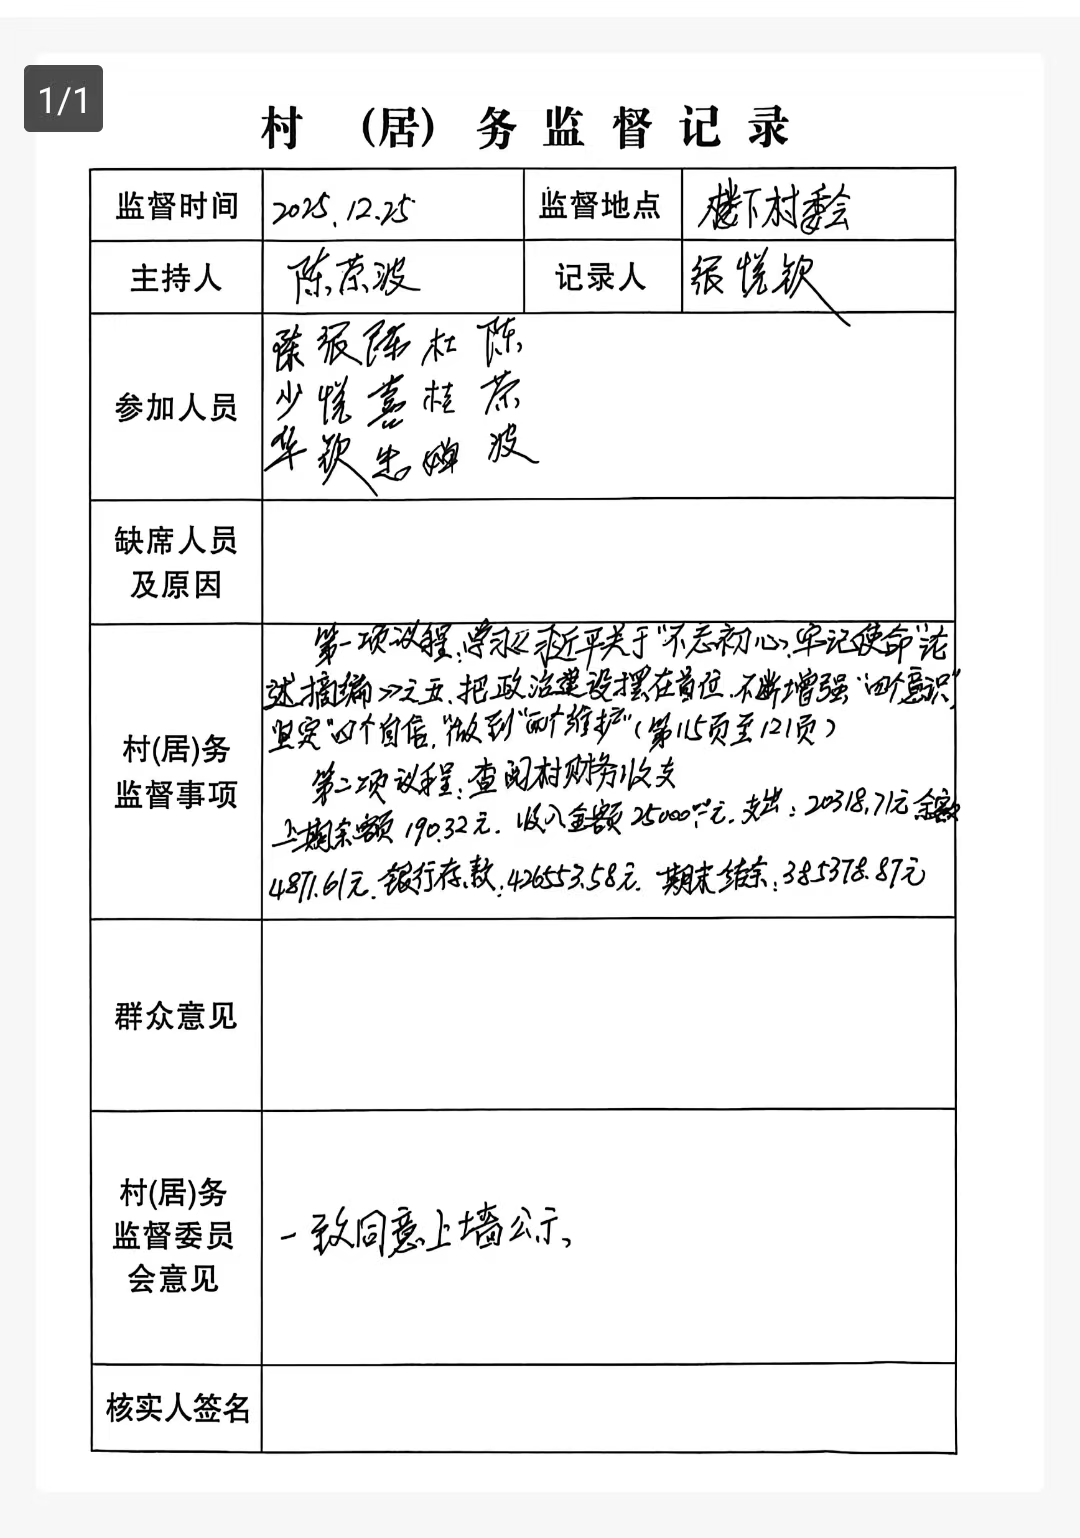 1/1
村 (居) 务监督记录
监督时间 2025.12.25 监督地点 楼下村委会
主持人 陈荣波 记录人 张悦钦
参加人员
陈少华 张悦钦 陈喜忠 杜桂婵 陈荣波
缺席人员
及原因
村(居)务
监督事项
第一项议程:学习《习近平关于"不忘初心、牢记使命"论
述摘编》之五、把政治建设摆在首位,不断增强"四个意识",
坚定"四个自信",做到"两个维护"(第115页至121页)
第二项议程:查阅村财务收支
上期余额190.32元.收入金额25000.00元.支出:20318.71元余额
4871.61元.银行存款:426553.58元.期末结余:385378.87元
群众意见
村(居)务
监督委员
会意见
一致同意上墙公示,
核实人签名